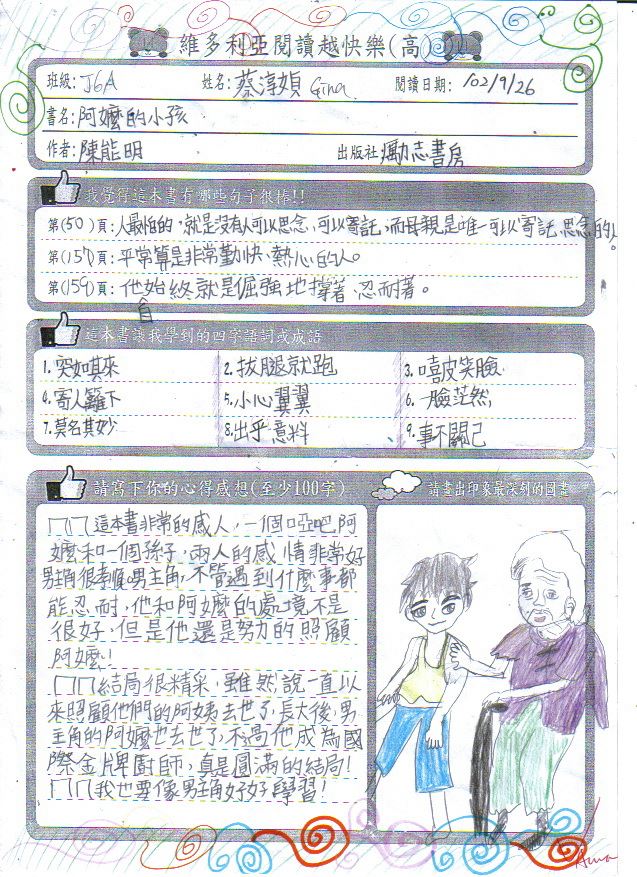 維多利亞閱讀越快樂(高)
班級: J6A 姓名: 蔡淳媜 Gina 閱讀日期: 102/9/26
書名: 阿嬤的小孩
作者: 陳能明 出版社 勵志書房
我覺得這本書有哪些句子很棒!!
第(50)頁: 人最怕的,就是沒有人可以思念,可以寄託,而母親是唯一可以寄託、思念的人。
第(157)頁: 平常算是非常勤快、熱心的人。
第(159)頁: 他自始終就是倔強地撐著、忍耐著。
這本書讓我學到的四字語詞或成語
1. 突如其來 2. 拔腿就跑 3. 嘻皮笑臉
4. 寄人籬下 5. 小心翼翼 6. 一臉茫然
7. 莫名其妙 8. 出乎意料 9. 事不關己
請寫下你的心得感想(至少100字)
這本書非常的感人,一個啞吧阿
嬤和一個孫子,兩人的感情非常好
男主角很孝順,男主角,不管遇到什麼事都
能忍耐,他和阿嬤的處境不是
很好,但是他還是努力的照顧
阿嬤!
結局很精采,雖然說一直以
來照顧他們的阿姨去世了,長大後,男
主角的阿嬤也去世了,不過他成為國
際金牌廚師,真是圓滿的結局!
我也要像男主角好好學習!
請畫出印象最深刻的圖畫